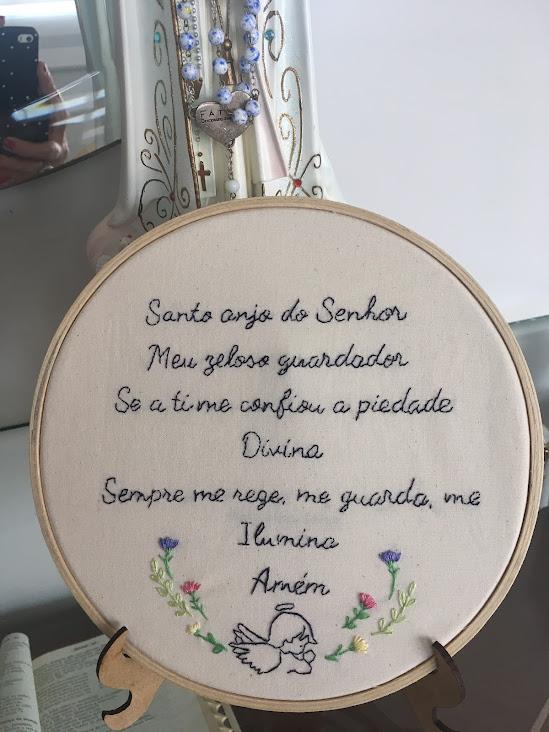 FAT
Santo anjo do Senhor
Meu zeloso guardador
Se a ti me confiou a piedade
Divina
Sempre me rege, me guarda, me
Ilumina
Amém